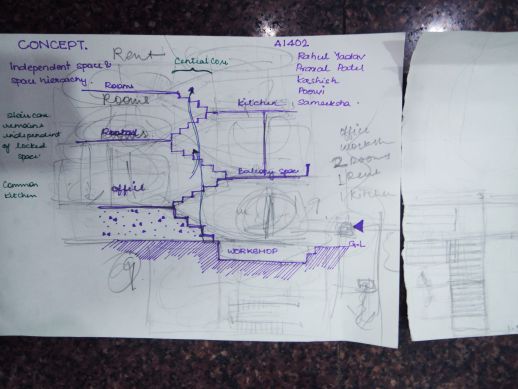 CONCEPT.
Rent
A1402
Independent space &
space hierachy.
Central Core
Rahul Yadav
Prazal Patel
Kashish
Poorvi
Sameeksha.
Rooms
Rooms
Kitchen
Stair case
remains
independent
of locked
space
office
worksh
2 rooms
1
1 kitchen
Balcony space
Common
Kitchen
office
G.L
WORKSHOP